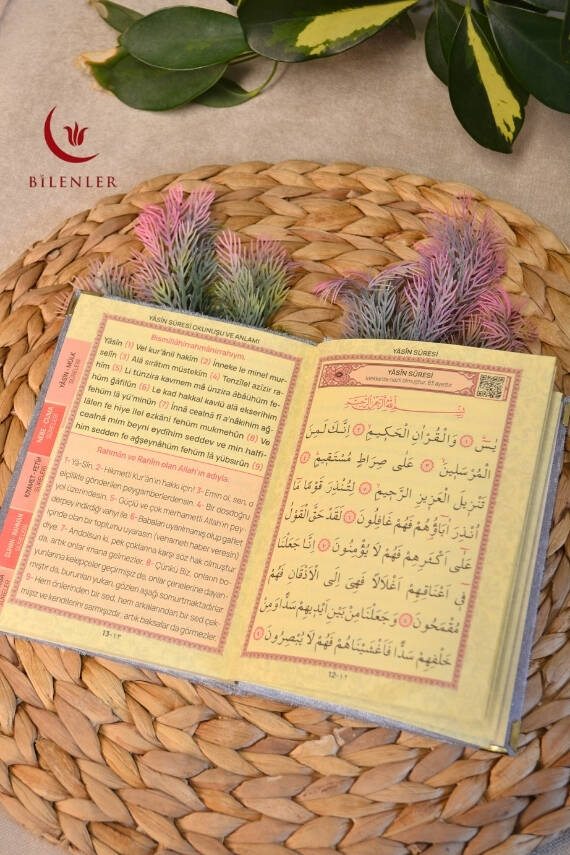 BİLENLER
YÂSÎN SÛRESİ OKUNUŞU VE ANLAMI
Bismillâhirrahmânirrahîym.
Yâsîn (1) Vel kur'ânil hakîm (2) İnneke le minel mur-
selîn (3) Alâ sırâtım müstekîm (4) Tenzîlel azîzir ra-
hîm (5) Li tünzira kavmem mâ ünzira âbâühüm fe-
hüm ğâfilûn (6) Le kad hakkal kavlü alâ ekserihim
fehüm lâ yü'minûn (7) İnnâ cealnâ fî a'nâkıhim ağ-
lâlen fe hiye ilel ezkâni fehüm mukmehûn (8) Ve
cealnâ mim beyni eydîhim seddev ve min halfi-
him sedden fe ağşeynâhüm fehüm lâ yübsırûn (9)
Rahmân ve Rahîm olan Allah'ın adıyla.
1- Yâ-Sîn. 2- Hikmetli Kur'ân'ın hakkı için! 3- Emin ol, sen, o
elçilikle gönderilen peygamberlerdensin. 4- Bir dosdoğru
yol üzerindesin. 5- Güçlü ve çok merhametli Allah'ın pey-
derpey indirdiği vahyi ile. 6- Babaları uyarılmamış olup gaflet
içinde olan bir toplumu uyarasın (vehameti haber veresin)
diye. 7- Andolsun ki, pek çoklarına karşı söz hak olmuştur
da, artık onlar imana gelmezler. 8- Çünkü Biz, onların bo-
yunlarına kelepçeler geçirmişiz de, onlar çenelerine dayan-
mıştır da, burunları yukarı, gözleri aşağı somurtmaktadırlar.
9- Hem önlerinden bir sed, hem arkalarından bir sed çek-
mişiz ve kendilerini sarmışızdır, artık baksalar da görmezler.
13-١٣
YÂSÎN - MÜLK
SÛRELERİ
NEBE - CUMA
SÛRELERİ
KIYAMET - FETİH
SÛRELERİ
YÂSÎN SÛRESİ
YÂSÎN SÛRESİ
Mekke'de nazil olmuştur. 83 ayettir.
بِسْمِ اللّٰهِ الرَّحْمٰنِ الرَّحٖيمِ
يٰسٓ ﴿١﴾ وَالْقُرْاٰنِ الْحَكٖيمِ ﴿٢﴾ اِنَّكَ لَمِنَ
الْمُرْسَلٖينَ ﴿٣﴾ عَلٰى صِرَاطٍ مُسْتَقٖيمٍ ﴿٤﴾
تَنْزٖيلَ الْعَزٖيزِ الرَّحٖيمِ ﴿٥﴾ لِتُنْذِرَ قَوْمًا مَٓا
اُنْذِرَ اٰبَٓاؤُ۬هُمْ فَهُمْ غَافِلُونَ ﴿٦﴾ لَقَدْ حَقَّ الْقَوْلُ
عَلٰٓى اَكْثَرِهِمْ فَهُمْ لَا يُؤْمِنُونَ ﴿٧﴾ اِنَّا جَعَلْنَا
فٖٓى اَعْنَاقِهِمْ اَغْلَالًا فَهِىَ اِلَى الْاَذْقَانِ فَهُمْ
مُقْمَحُونَ ﴿٨﴾ وَجَعَلْنَا مِنْ بَيْنِ اَيْدٖيهِمْ سَدًّا وَمِنْ
خَلْفِهِمْ سَدًّا فَاَغْشَيْنَاهُمْ فَهُمْ لَا يُبْصِرُونَ ﴿٩﴾
12-١٢